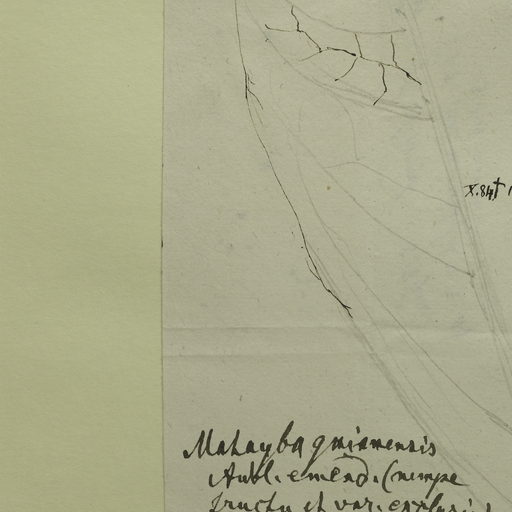 X.84†
Matayba guianensis
Aubl. emend. (nempe
fructu et var. exclusis